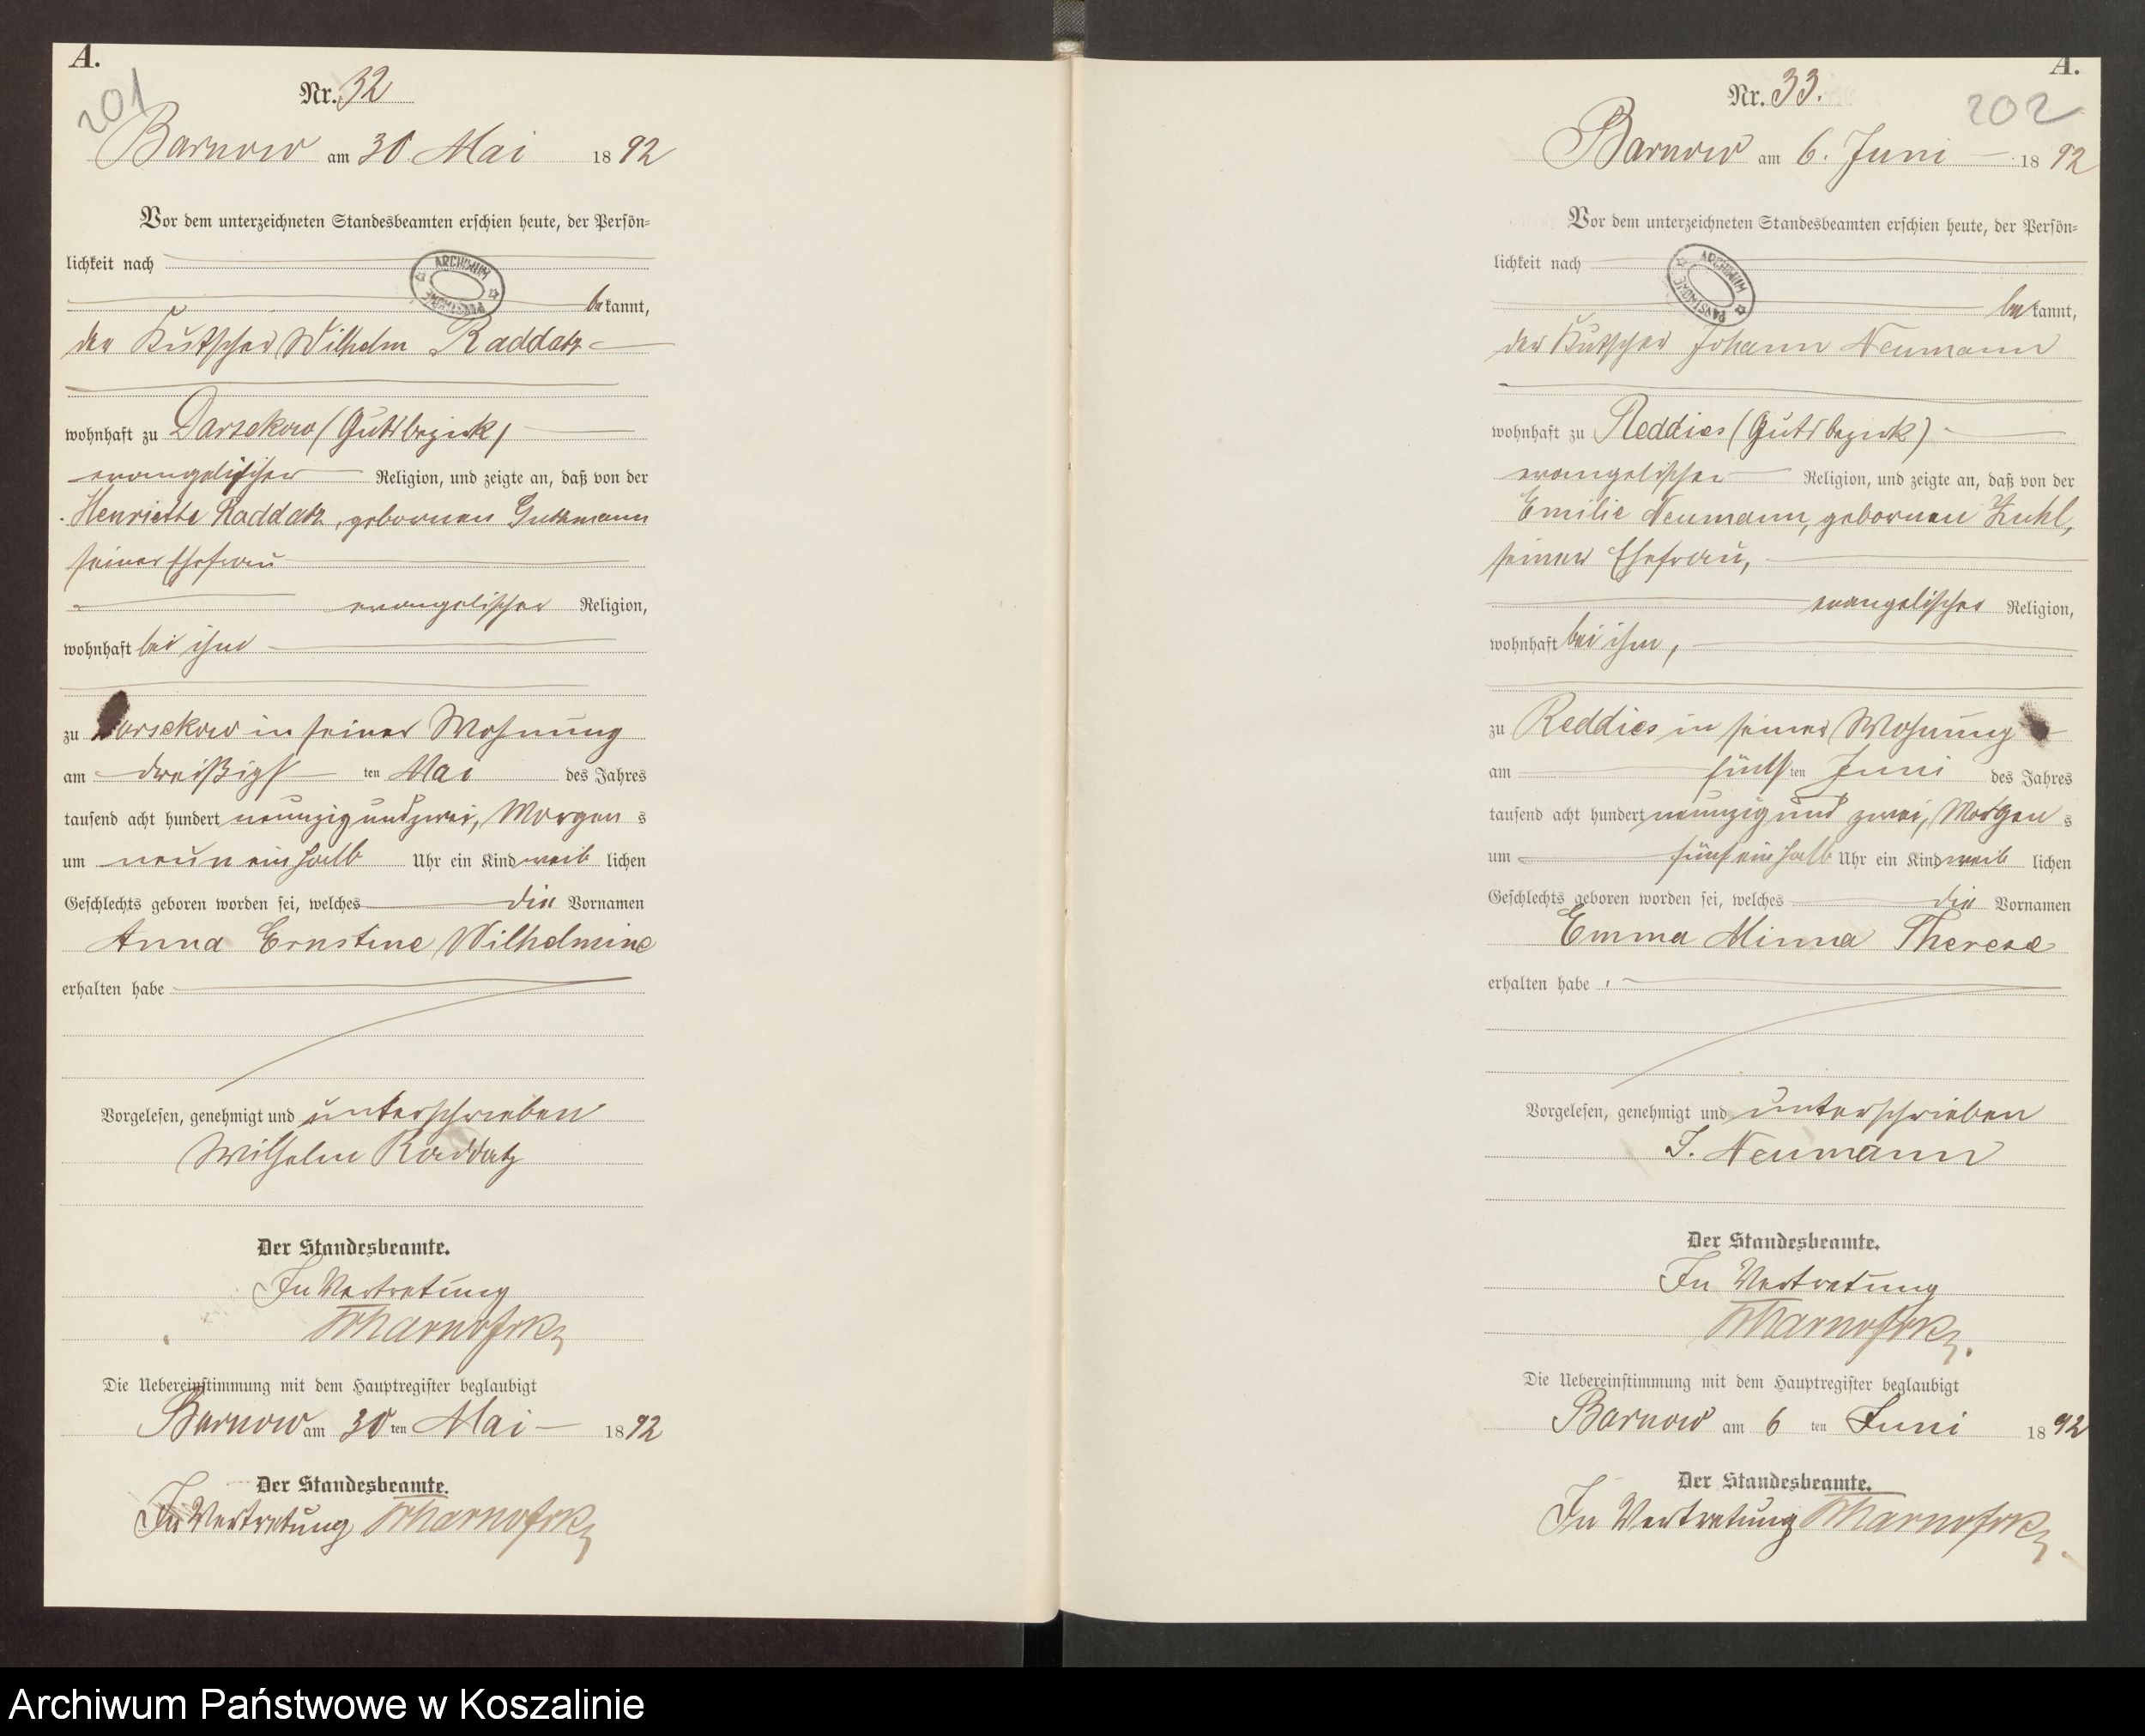 A.
201
Nr. 32
Barnow am 30. Mai 1892
Vor dem unterzeichneten Standesbeamten erschien heute, der Persön-
lichkeit nach
bekannt,
der Kutscher Wilhelm Raddatz
wohnhaft zu Darsekow (Gutsbezirk)
evangelischer Religion, und zeigte an, daß von der
Henriette Raddatz, gebornen Guthmann
seiner Ehefrau
evangelischer Religion,
wohnhaft bei ihm
zu Darsekow in seiner Wohnung
am dreißigsten Mai des Jahres
tausend acht hundert neunzig und zwei, Morgens
um neun ein halb Uhr ein Kind weiblichen
Geschlechts geboren worden sei, welches die Vornamen
Anna Ernstine Wilhelmine
erhalten habe
Vorgelesen, genehmigt und unterschrieben
Wilhelm Raddatz
Der Standesbeamte.
In Vertretung
Die Uebereinstimmung mit dem Hauptregister beglaubigt
Barnow am 30ten Mai 1892
Der Standesbeamte.
In Vertretung
A.
202
Nr. 33.
Barnow am 6. Juni 1892
Vor dem unterzeichneten Standesbeamten erschien heute, der Persön-
lichkeit nach
bekannt,
der Kutscher Johann Neumann
wohnhaft zu Reddies (Gutsbezirk)
evangelischer Religion, und zeigte an, daß von der
Emilie Neumann, gebornen Kuhl,
seiner Ehefrau,
evangelischer Religion,
wohnhaft bei ihm,
zu Reddies in seiner Wohnung
am fünften Juni des Jahres
tausend acht hundert neunzig und zwei, Morgens
um fünf ein halb Uhr ein Kind weiblichen
Geschlechts geboren worden sei, welches die Vornamen
Emma Minna Therese
erhalten habe.
Vorgelesen, genehmigt und unterschrieben
J. Neumann
Der Standesbeamte.
In Vertretung
Die Uebereinstimmung mit dem Hauptregister beglaubigt
Barnow am 6 ten Juni 1892
Der Standesbeamte.
In Vertretung
ARCHIWUM PAŃSTWOWE
ARCHIWUM PAŃSTWOWE
Archiwum Państwowe w Koszalinie